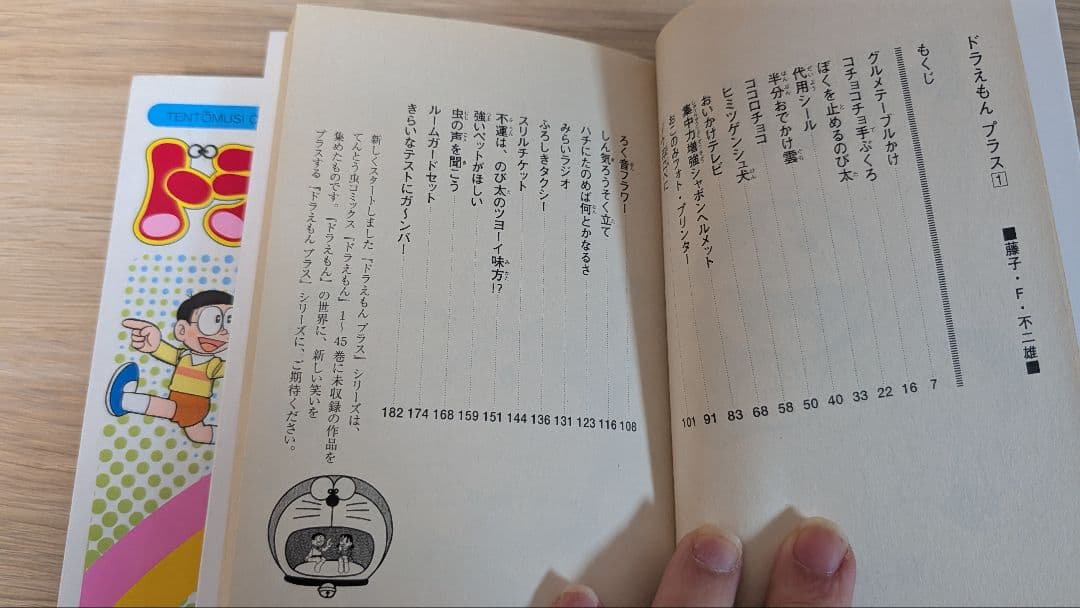 ドラえもん プラス 1
■藤子・F・不二雄■
もくじ
グルメテーブルかけ 7
コチョコチョ手ぶくろ 16
ぼくを止めるのび太 22
代用シール 33
半分おでかけ雲 40
ココロチョコ 50
ヒミツゲンシュ犬 58
おいかけテレビ 68
集中力増強シャボンヘルメット 83
おこのみフォト・プリンター 91
101
ろく音フラワー 108
しん気ろうそく立て 116
ハチにたのめば何とかなるさ 123
みらいラジオ 131
ふろしきタクシー 136
スリルチケット 144
不運は、のび太のツヨーイ味方!? 151
強いペットがほしい 159
虫の声を聞こう 168
ルームガードセット 174
きらいなテストにガ〜ンバー 182
新しくスタートしました『ドラえもん プラス』シリーズは、
てんとう虫コミックス『ドラえもん』1〜45巻に未収録の作品を
集めたものです。『ドラえもん』の世界に、新しい笑いを
プラスする『ドラえもん プラス』シリーズに、ご期待ください。
TENTŌMUSI
ド